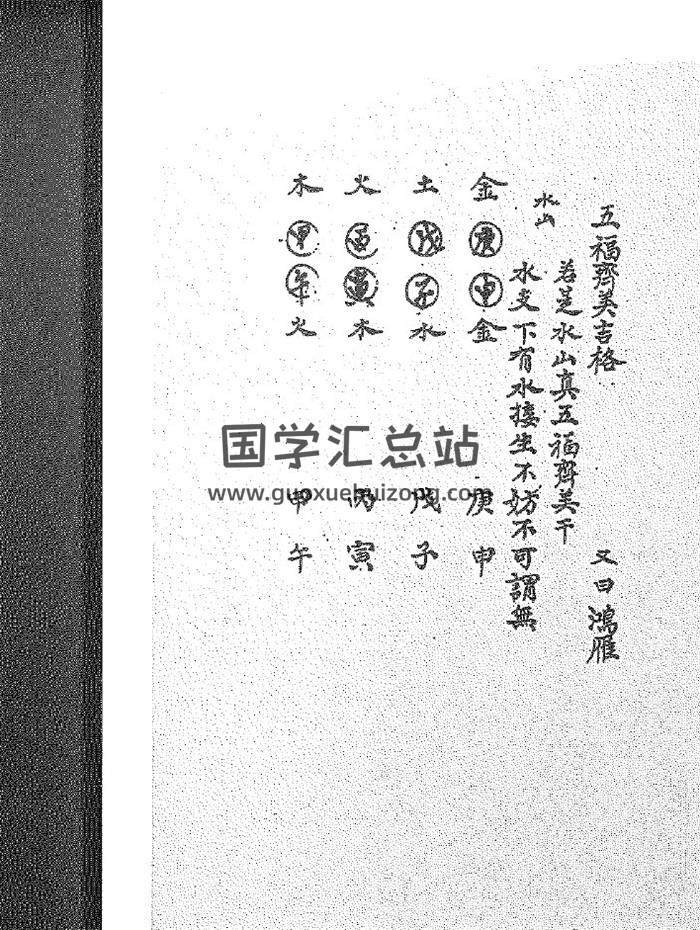 五福齊美吉格 又曰鴻雁
若是水山真五福齊美干
水山
水支下有水接生不妨不可謂無
金 庚 申 金 庚申
土 戊 子 水 戊子
火 丙 寅 木 丙寅
木 甲 午 火 甲午
国学汇总站
www.guoxuehuizong.com